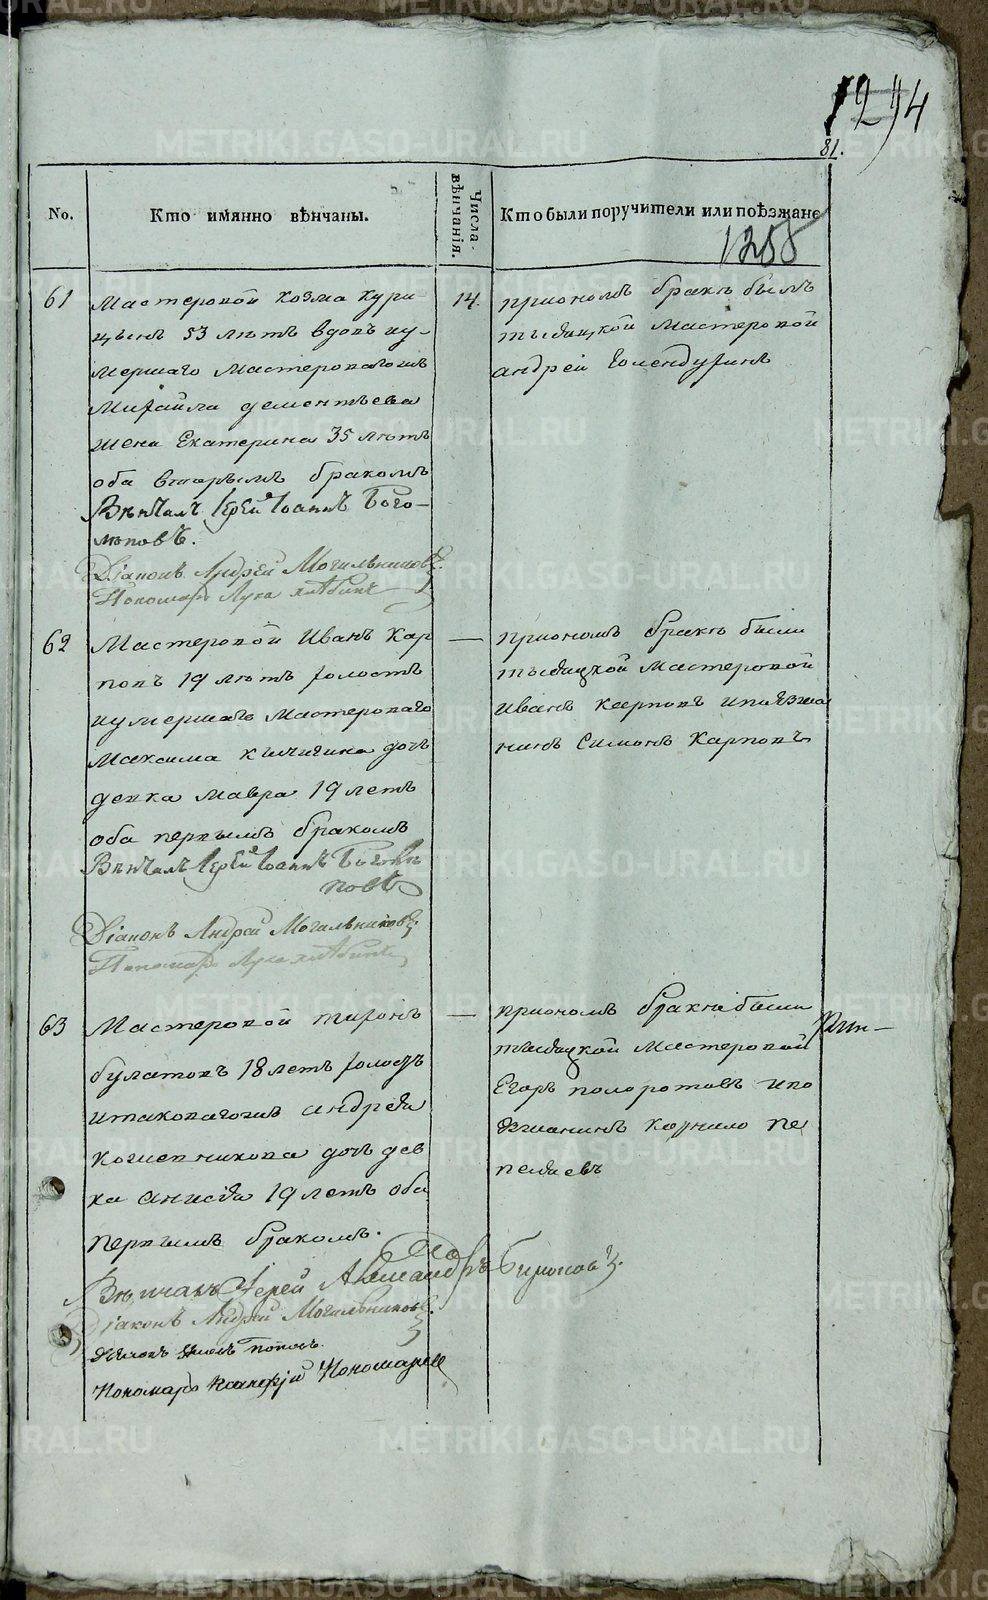 1294
81.
No.
Кто имянно вѣнчаны.
Числа вѣнчанія.
Кто были поручители или поѣзжане
1258
61
Мастеровой козма кури-
цынъ 53 лѣтъ вдовъ иу-
мершаго мастероваго
Михайла дементьева
жена Екатерина 35 лѣтъ
оба вторымъ бракомъ
Вѣнчалъ Іерей Іоаннъ Бого-
лѣповъ.
Діаконъ Андрей Могильниковъ.
Пономарь Лука
14.
приономъ бракѣ былъ
тысяцкой мастеровой
андрей
62
Мастеровой Иванъ кар
повъ 19 лѣтъ холостъ
иумершаго мастероваго
Максима кичигина доч
девка мавра 19 летъ
оба первымъ бракомъ
Вѣнчалъ Іерей Іоаннъ Боголѣ
повъ
Діаконъ Андрей Могильниковъ.
Пономарь Лука
—
приономъ бракѣ были
тысяцкой мастеровой
иванъ карповъ ипоѣзжа
нинъ Симонъ карповъ
63
Мастеровой тихонъ
булатовъ 18 летъ холостъ
андрея
кожевникова доч дев
ка анисія 19 летъ оба
первымъ бракомъ.
Вѣнчалъ Іерей Александръ Бирюковъ.
Діаконъ Андрей Могильниковъ.
Пономарь Пономаревъ
—
приономъ бракѣ были
тысяцкой мастеровой
Егоръ полоротовъ ипо
езжанинъ корнило пе
пеляевъ